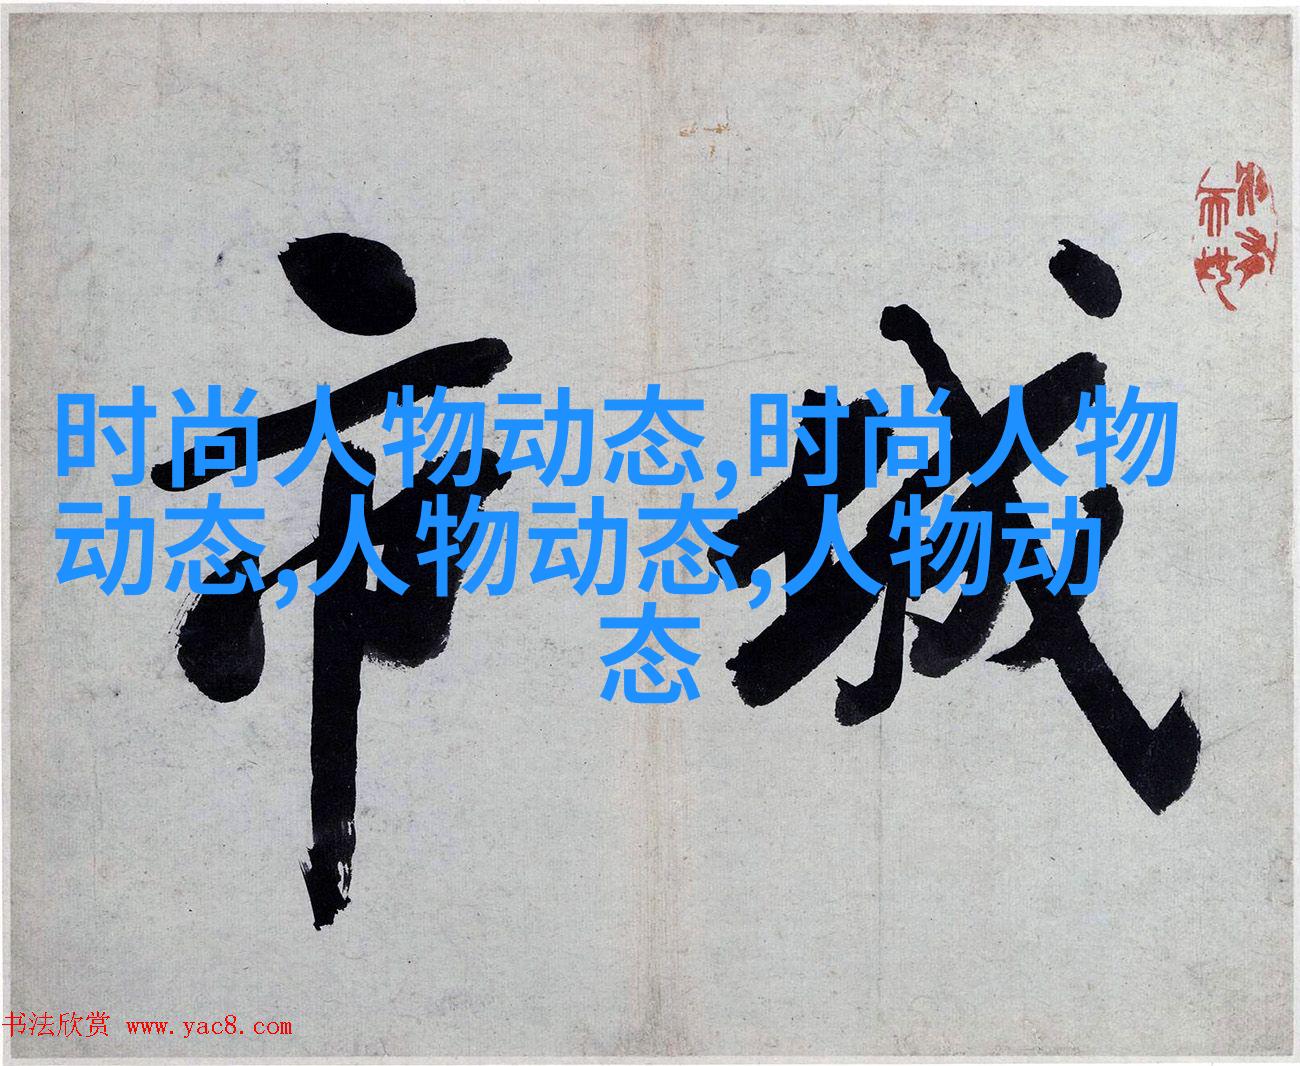 城市
时尚人物动态,时尚人物
动态,人物动态,人物动
态
书法欣赏 www.yac8.com